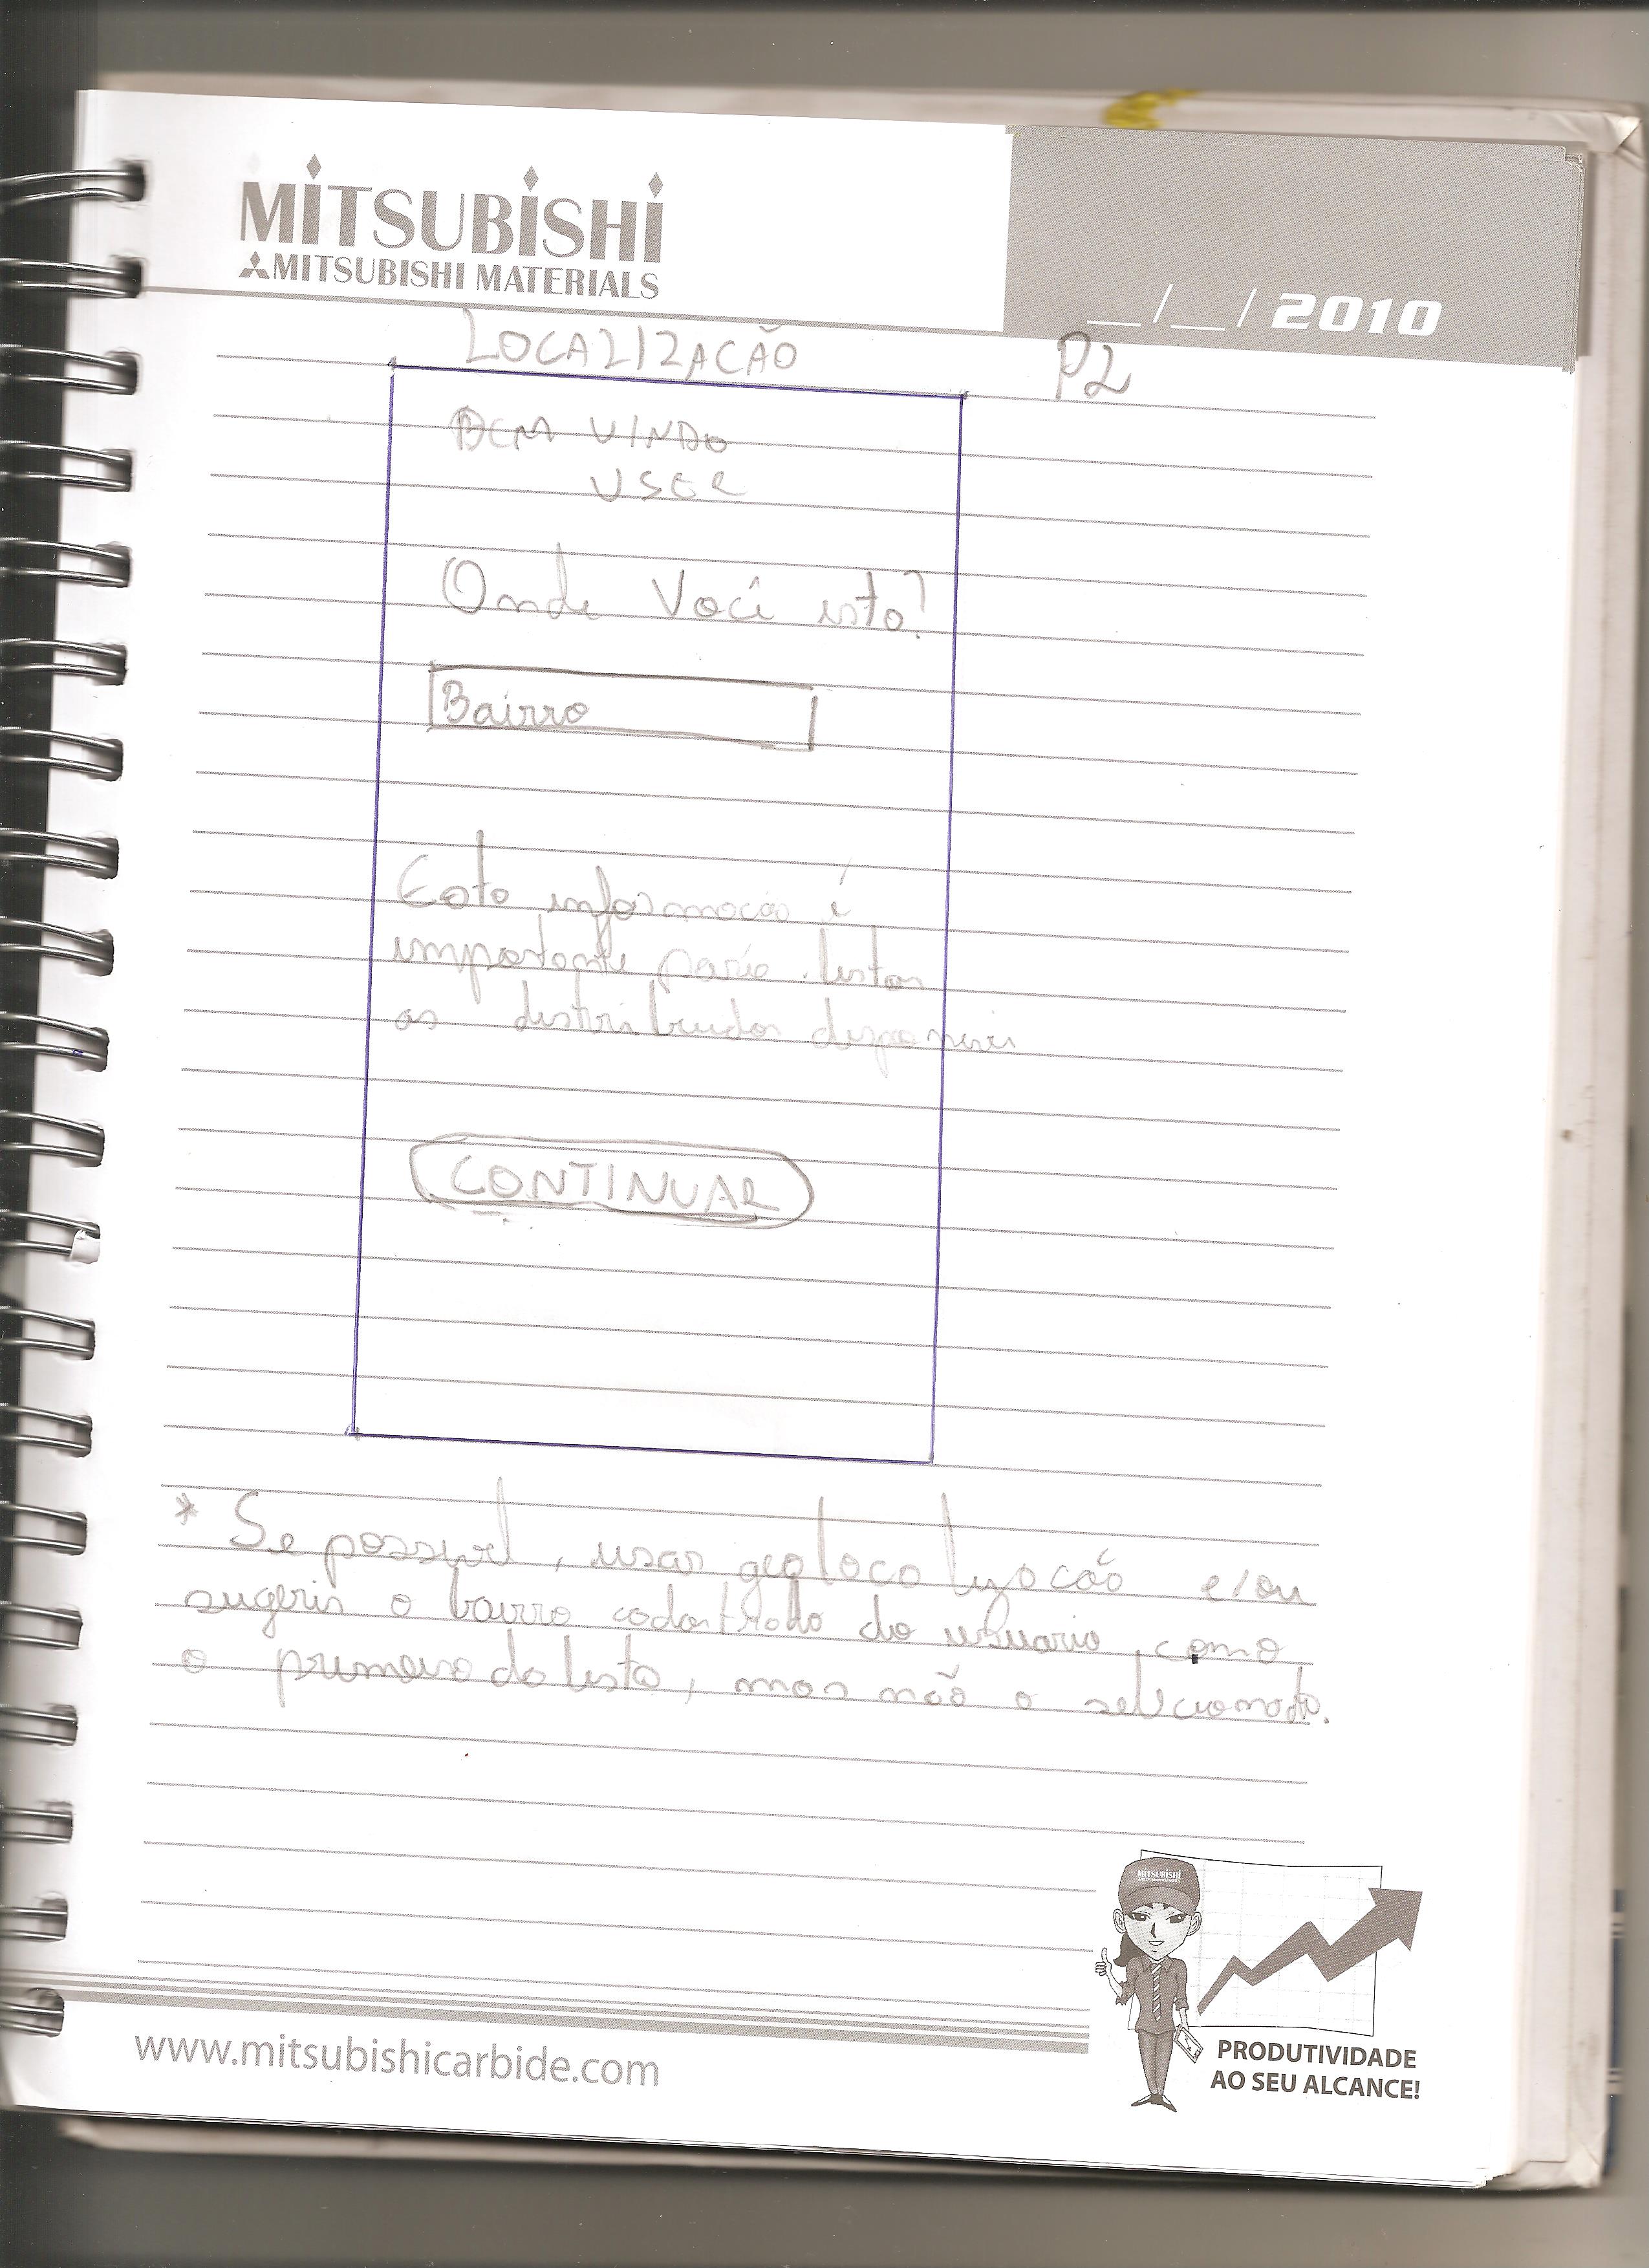 MITSUBISHI
MITSUBISHI MATERIALS
__/__/2010
LOCALIZACÃO P2
BEM VINDO
USER
Onde Você esta?
Bairro
Esta informacão é
importante para listar
as distribuidor disponiveis
CONTINUAR
* Se possivel, usar geolocalizacão e/ou
sugerir o bairro cadastrado do usuario, como
o primeiro da lista, mas não o selecionado.
MITSUBISHI
www.mitsubishicarbide.com
PRODUTIVIDADE
AO SEU ALCANCE!